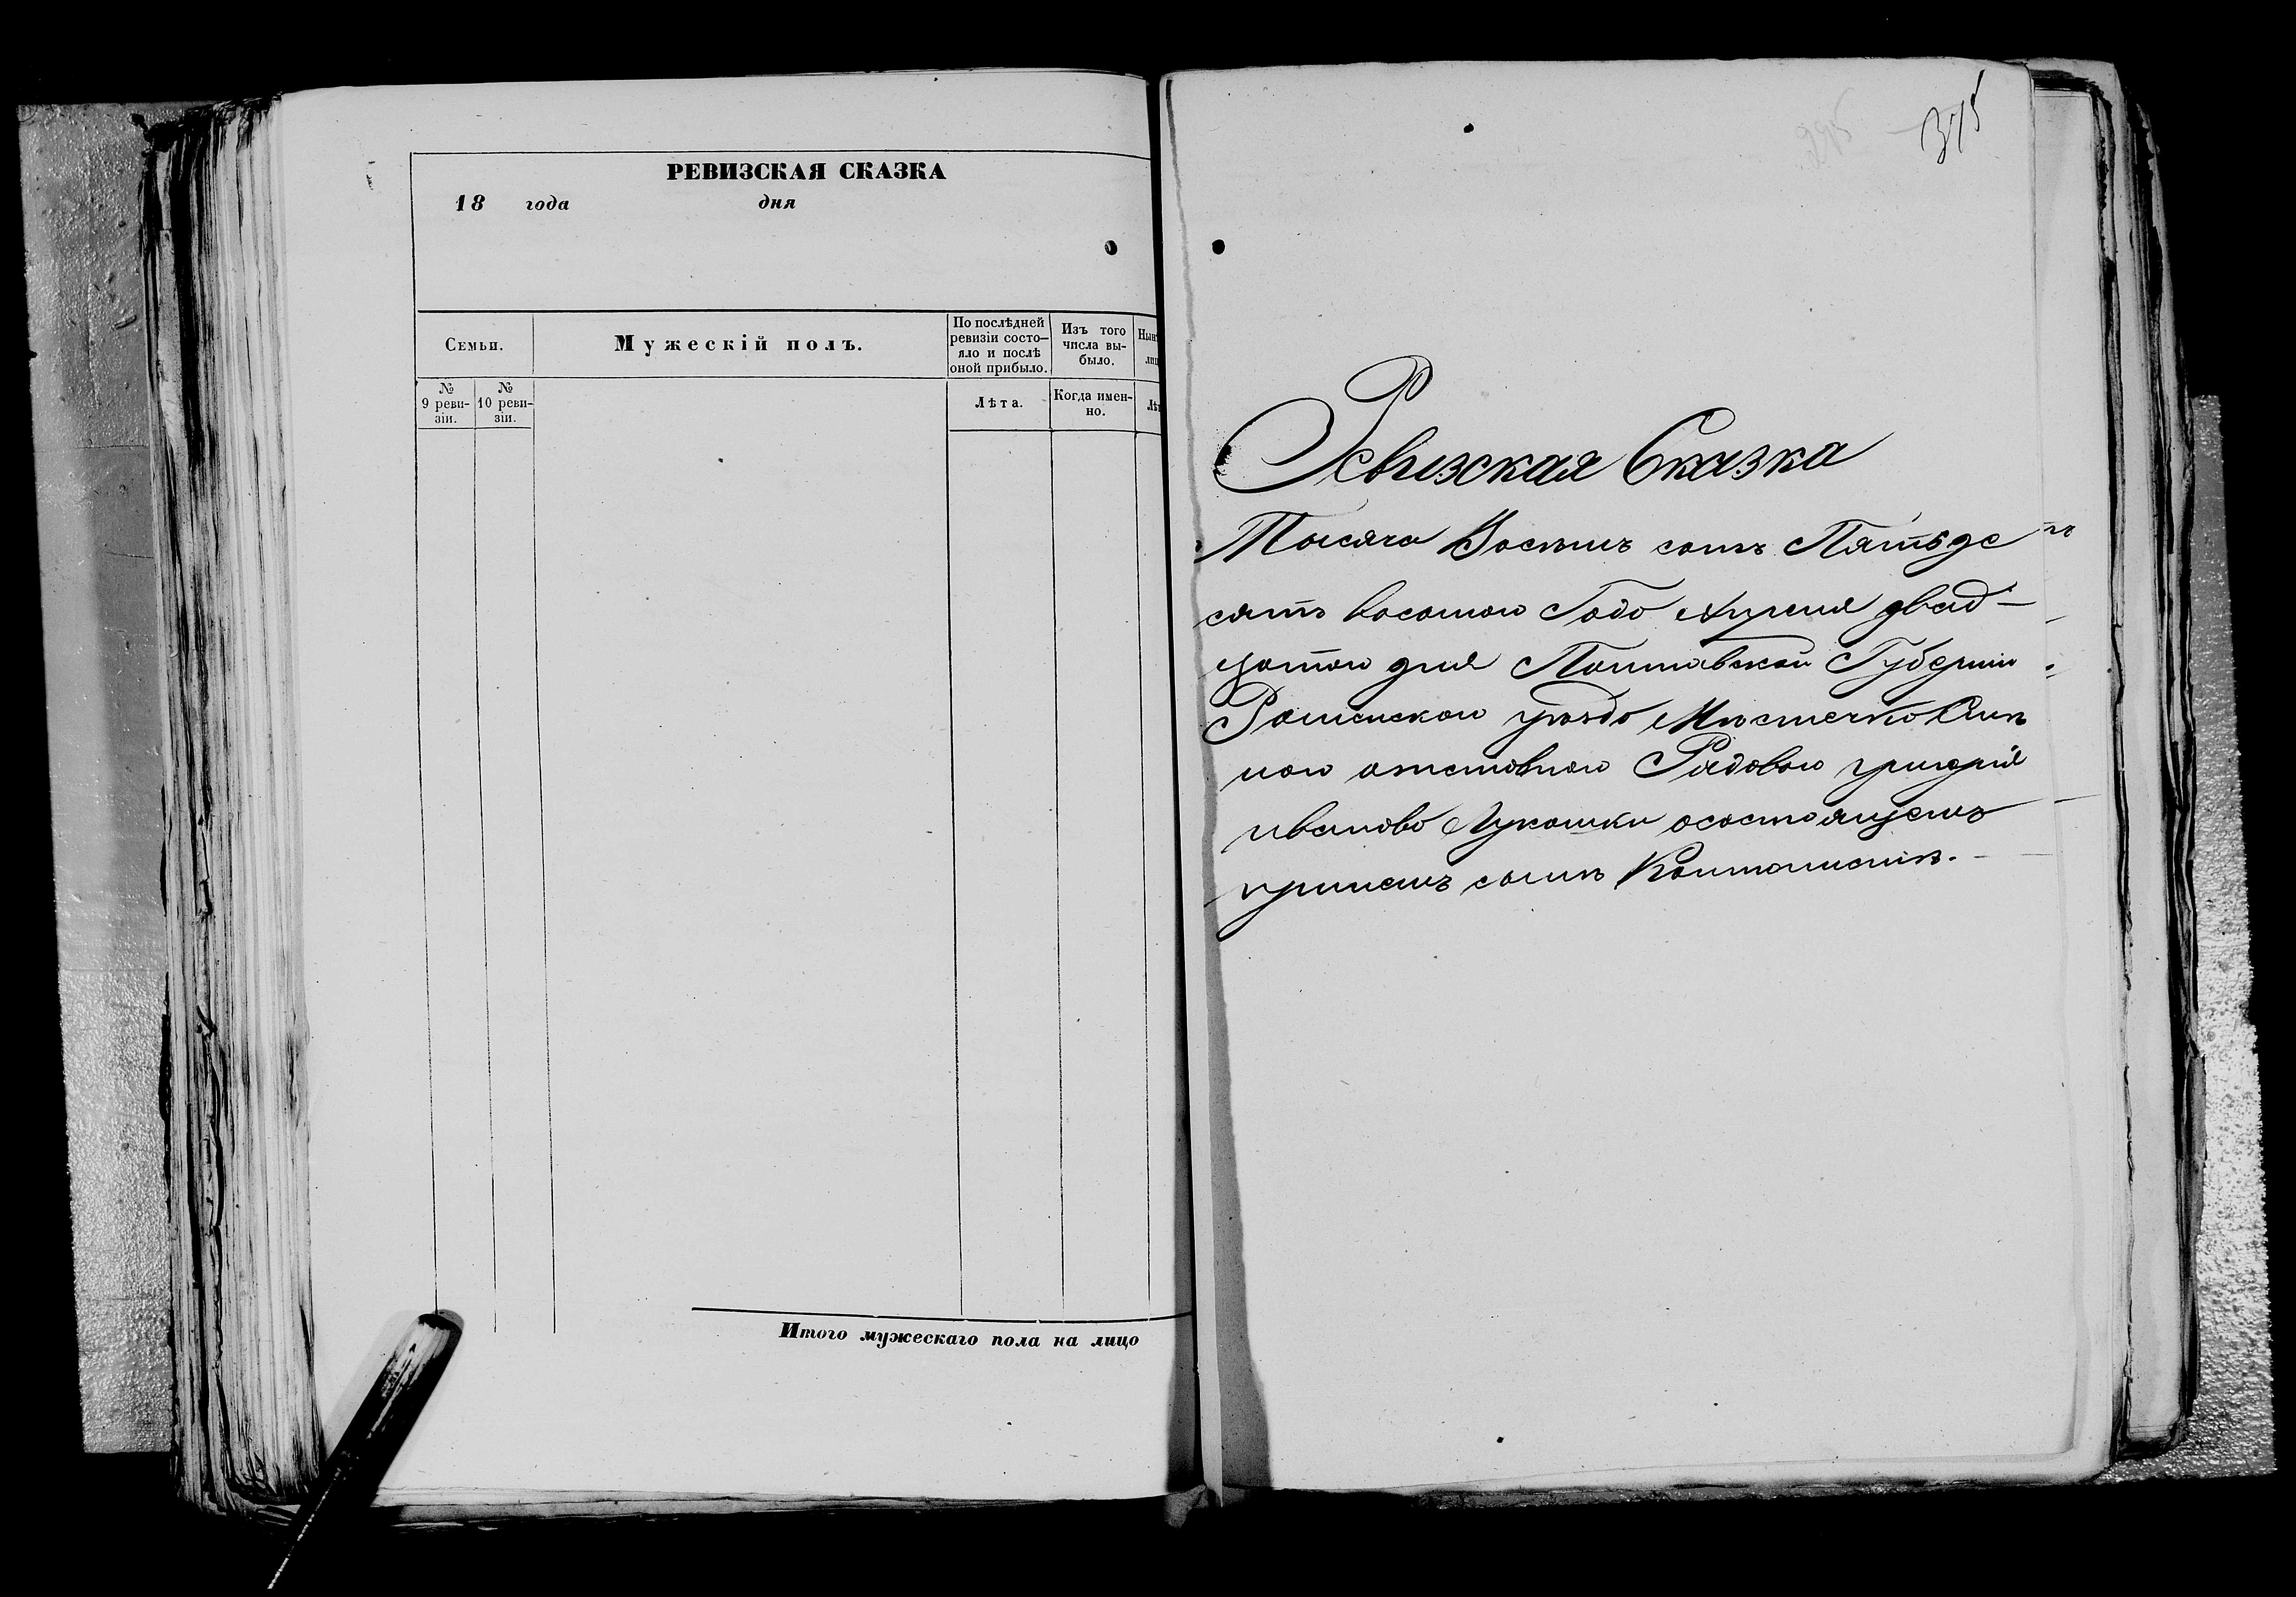 РЕВИЗСКАЯ СКАЗКА
18 года дня
Семьи.
Мужескій полъ.
По послѣдней ревизіи состо-
яло и послѣ
оной прибыло.
Изъ того
числа вы-
было.
№
9 реви-
зіи.
№
10 реви-
зіи.
Лѣта.
Когда имен-
но.
Итого мужескаго пола на лицо
375
Ревизская Сказка
Тысяча Восемъ сотъ Пятьде
сятъ восомои Года Апреля двад-
цатои дня Полтавскои Губернии
Роменскои уезда Мѣстечко
отставнои Рядовои григорія
иванова Лукашки осостоящемъ
принемъ сынѣ Кантонистѣ.